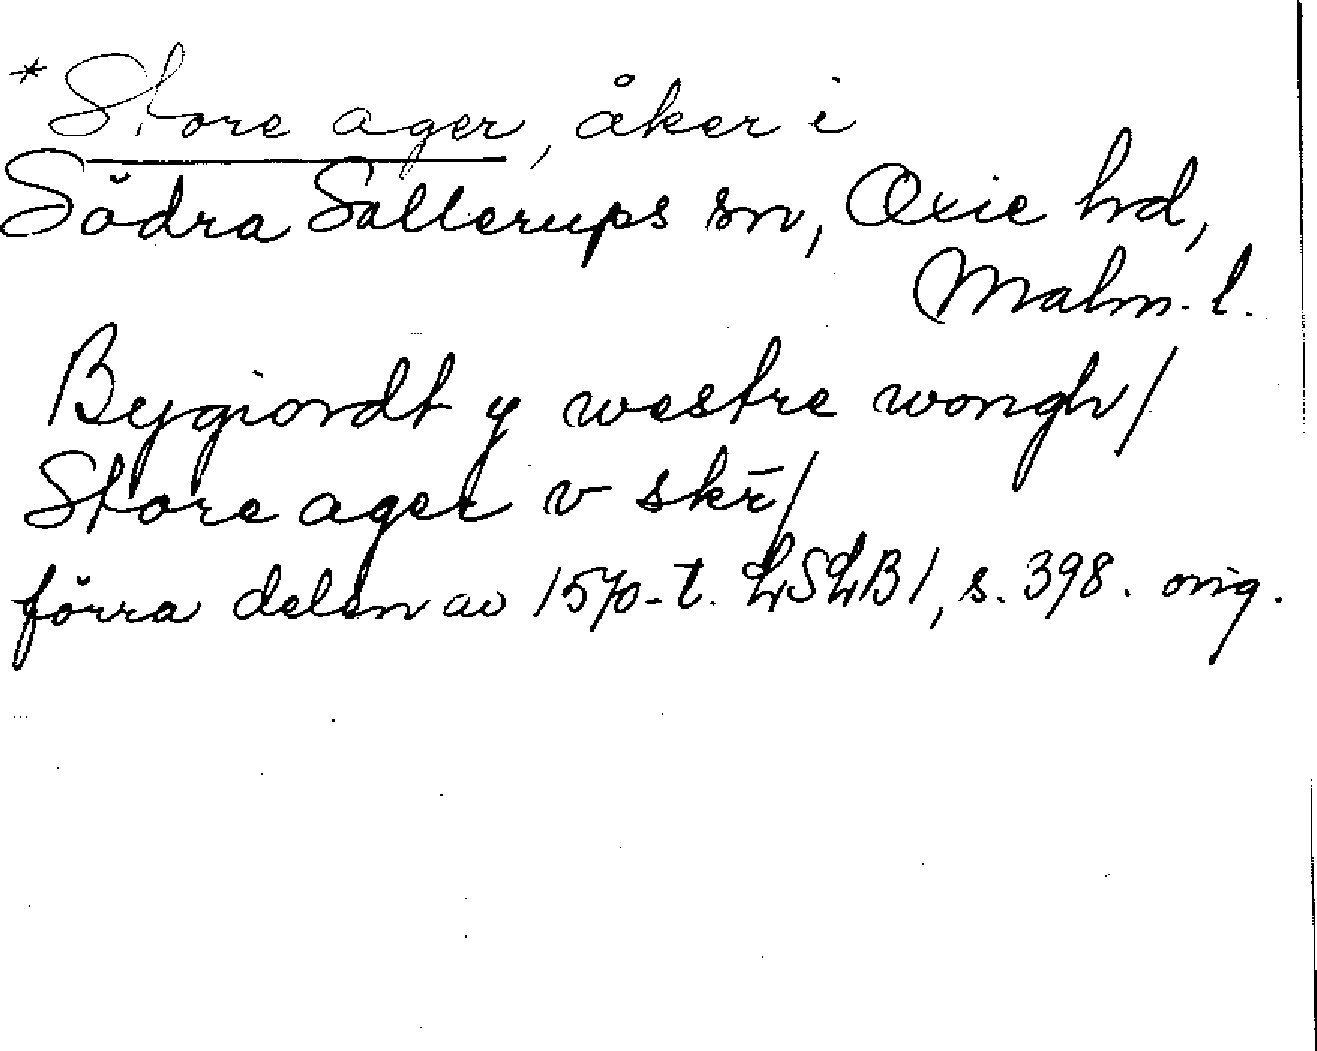 *Store ager, åker i
Södra Sallerups sn, Oxie hd,
Malm. l.
Bygiordt y westre wongh/
Store ager v skr̄/
förra delen av 1570-t. LSLB1, s. 398. orig.